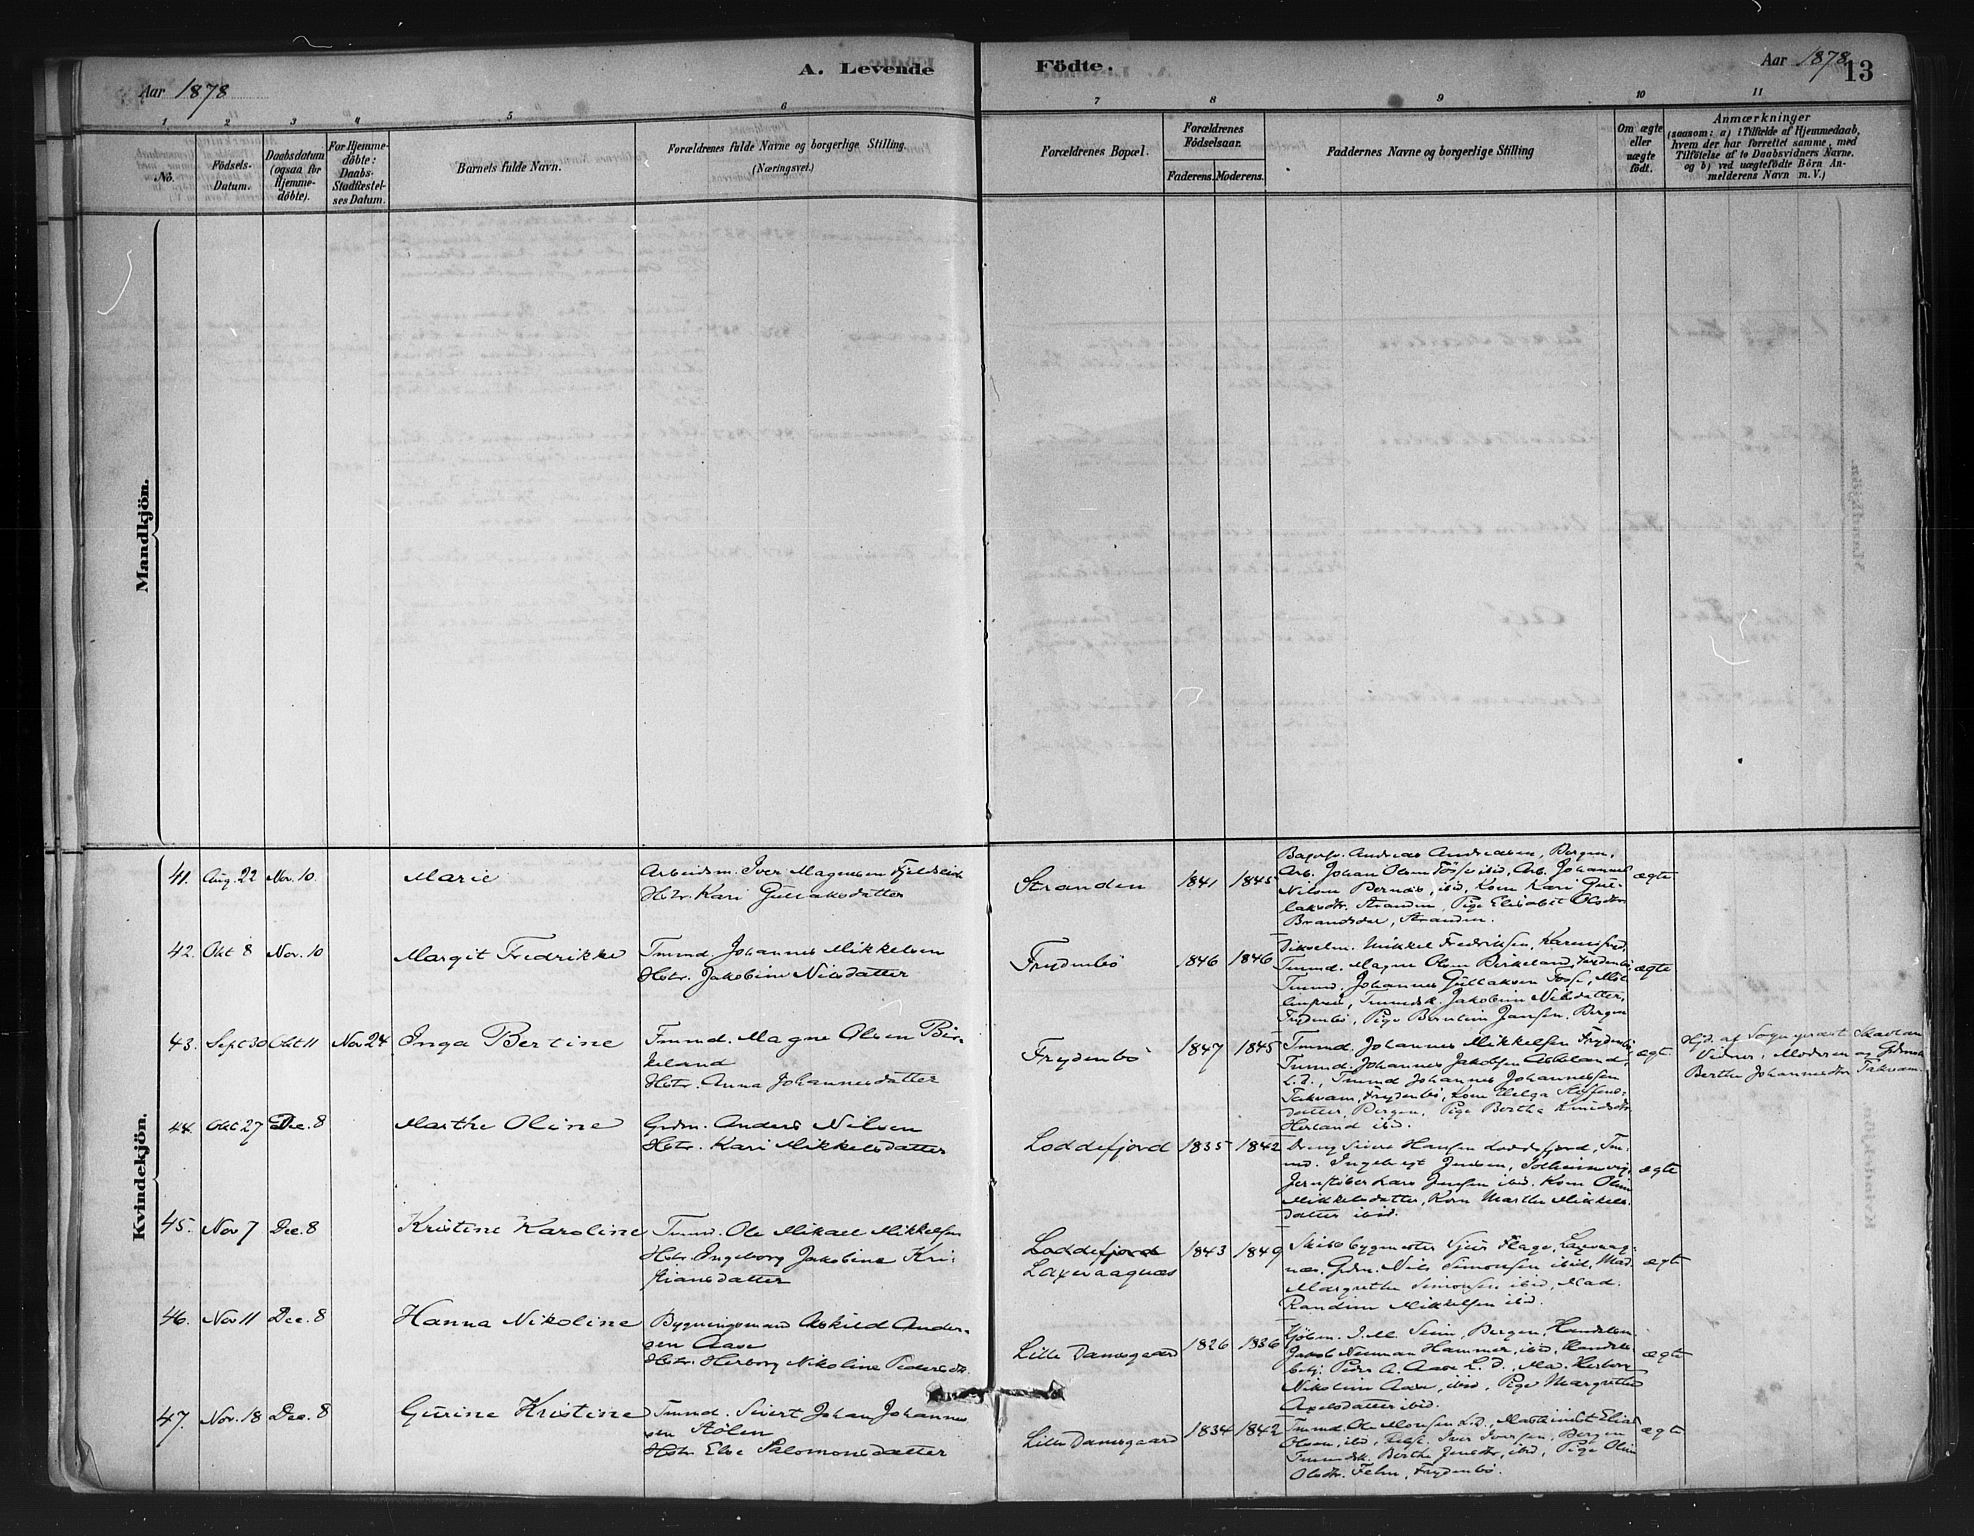 A. Levende Födte.
Aar 1878
Aar 1878. 13
1 2 3 4 5 6 7 8 9 10 11
No.
Födsels-
Datum.
Daabsdatum
(ogsaa for
Hjemme-
döbte).
For Hjemme-
döbte:
Daabs-
Stadfæstel-
ses Datum.
Barnets fulde Navn.
Forældrenes fulde Navne og borgerlige Stilling
(Næringsvei.)
Forældrenes Bopæl.
Forældrenes
Födselsaar.
Faderens. Moderens.
Faddernes Navne og borgerlige Stilling
Om ægte
eller
uægte
födt.
Anmærkninger
(saasom: a) i Tilfælde af Hjemmedaab,
hvem der har forrettet samme, med
Tilföielse af to Daabsvidners Navne.
og b) ved uægtefödte Börn An-
melderens Navn m. V.)
Mandkjön.
Kvindekjön.
41. Aug. 22 Nov. 10. Marie
Arbeidsm. Iver Magnesen Fjeldseide
Hstr. Kari Gullaksdatter
Stranden 1841 1845
Andreas Andreasen, Bergen,
Arb. Johan Olsen Fösse ibid, Arb. Johannes
Nilsen Pernæs, ibid, Kone Kari Gul-
laksdtr. Stranden, Pige Elisabet Olsdtr
Brandsdal, Stranden.
ægte
42. Okt 8 Nov. 10 Margit Fredrikke
Tmmd. Johannes Mikkelsen
Hstr. Jakobine Nilsdatter
Frydenbö 1846 1846
Mikkel Fredriksen,
Tmmd. Magne Olsen Birkeland, Frydenbö,
Tmmd. Johannes Gullaksen Fosse,
Tmmdsk. Jakobine Nilsdatter,
Frydenbö, Pige Berntine Jansen, Bergen
ægte
43. Sept 30 Okt 11 Nov 24. Inga Bertine
Tmmd. Magne Olsen Bir-
keland
Hstr. Anna Johannesdatter
Frydenbö 1847 1845
Tmmd. Johannes Mikkelsen Frydenbö,
Tmmd. Johannes Jakobsen Askeland,
L. D., Tmmd Johannes Johannessen
Takvam, Frydenbö, Kone Helga Steffens-
datter, Bergen, Pige Bertha Knudsdtr
Herland ibid.
ægt.
Hjd. af Sogneprest Skavlan
Vidner: Moderen og Grdmsk
Berthe Johannesdtr Takvam.
44. Okt 27 Dec. 8 Marthe Oline
Grdm. Anders Nilsen
Hstr. Kari Mikkelsdatter
Loddefjord 1835 1842
Hansen Loddefjord, Tm-
md. Ingebrigt Jensen, Solheimsvig,
Jernstöber Lars Jensen ibid. Kone Oline
Mikkelsdatter, Kone Marthe Mikkels-
datter ibid.
ægte
45. Nov 7 Dec. 8 Kristine Karoline
Tmmd. Ole Mikael Mikkelsen
Hstr. Ingeborg Jakobine Kri-
stiansdatter
Loddefjord
Laxevaagnæs 1843 1849
Skibsbygmester Sjur Hage, Laxevaag-
næs, Grdm. Nils Simonsen ibid, Mad.
Margrethe Simonsen ibid, Mad.
Randine Mikkelsen ibid.
ægte
46. Nov 11 Dec. 8 Hanna Nikoline
Bygningsmand Askild Ander-
sen Aase
Hstr. Herborg Nikoline Pedersdtr.
Lille Damsgaard 1826 1836
Kjöbm. I. M. Seim, Bergen, Handelsm.
Jakob Neuman Hammer, ibid, Handels-
betj. Peder A. Aase L. D., Ma. Herborg
Nikoline Aase, ibid, Pige Margrethe
Axelsdatter ibid.
ægte
47. Nov. 18 Dec. 8 Gurine Kristine
Tmmd. Sivert Johan Johannes-
sen Stölen
Hstr Else Salomonsdatter
Lille Damsgaard 1834 1842
Tmmd. Ole Monsen L. D., Maskinist Elias
Olsen, ibid, Iver Iversen, Bergen
Tmmdsk. Berthe Jensdtr, ibid, Pige Oline
Olsdtr. Frydenbö.
ægte